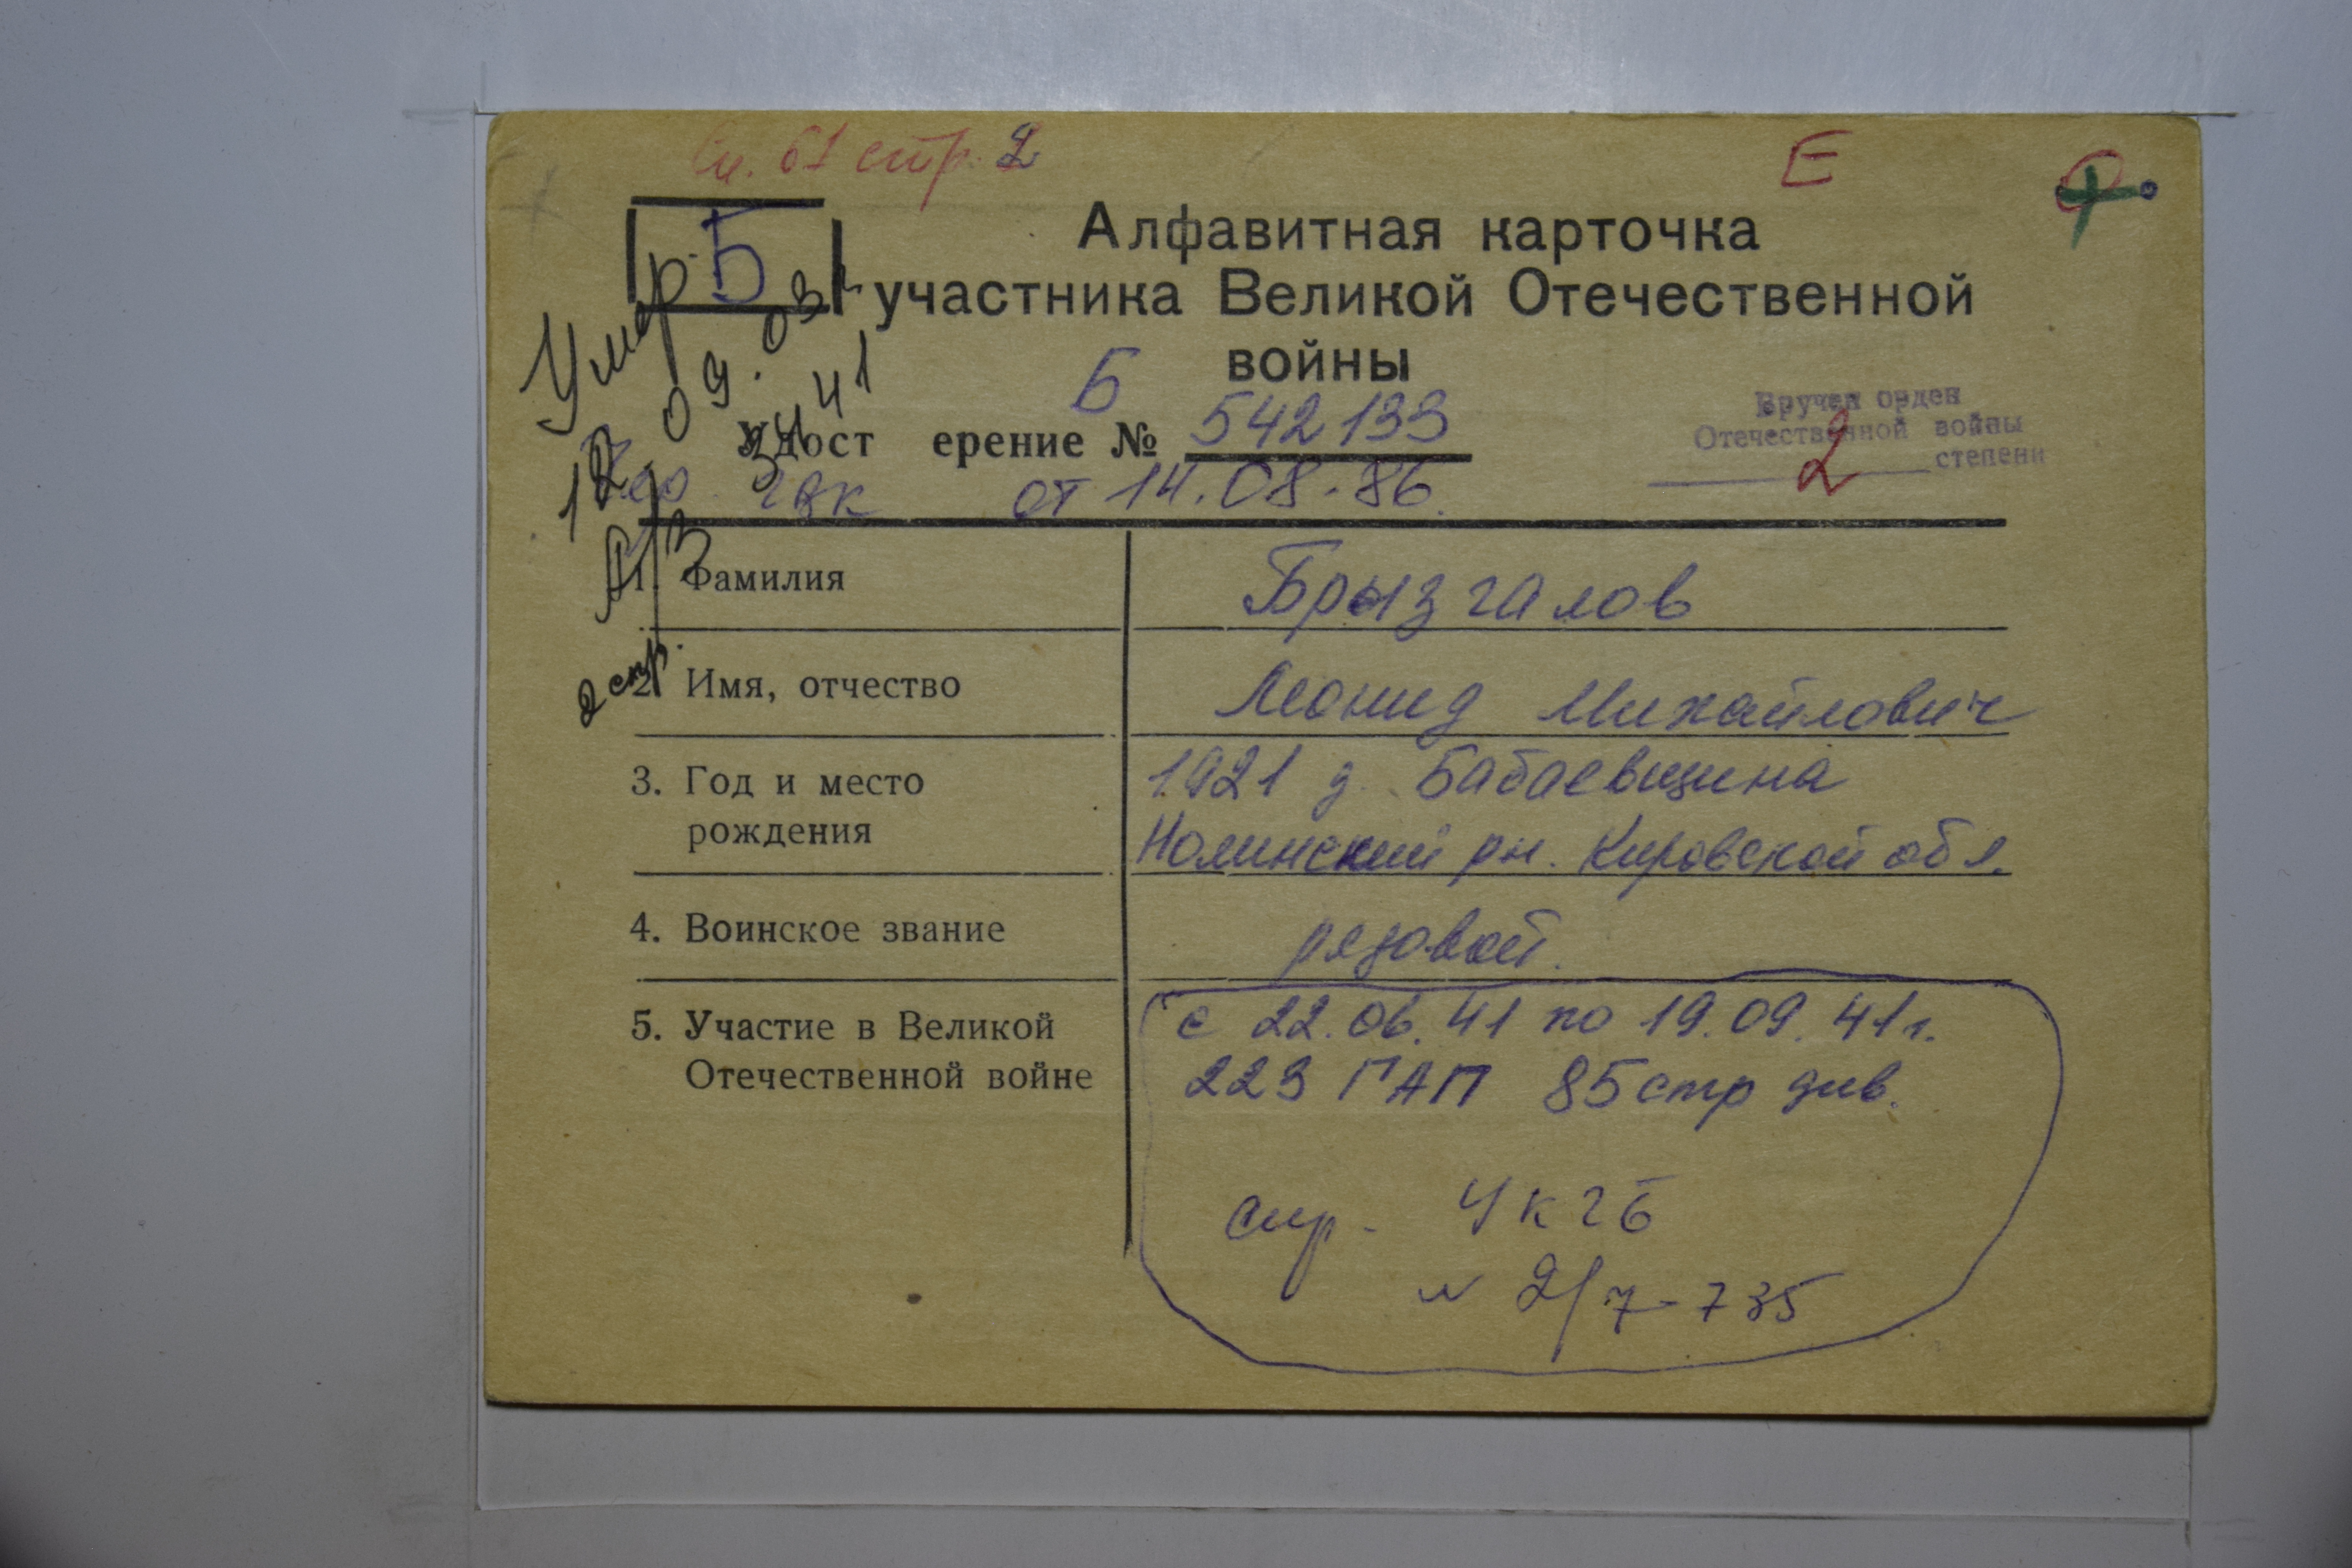 Сп. 61 стр. 2
Е
Б
Алфавитная карточка
участника Великой Отечественной
войны
Умер
12.09.03
А/З 3441
2 стр.
Б
Удост ерение № 542133
от 14.08.86.
Вручен орден
Отечественной войны
2 степени
1. Фамилия Брызгалов
2. Имя, отчество Леонид Михайлович
3. Год и место 1921 д. Бабаевщина
рождения Нолинский рн. Кировской обл.
4. Воинское звание рядовой.
5. Участие в Великой с 22.06.41 по 19.09.41г.
Отечественной войне 223 ГАП 85 стр див.
спр. УКГБ
N 2/7-735